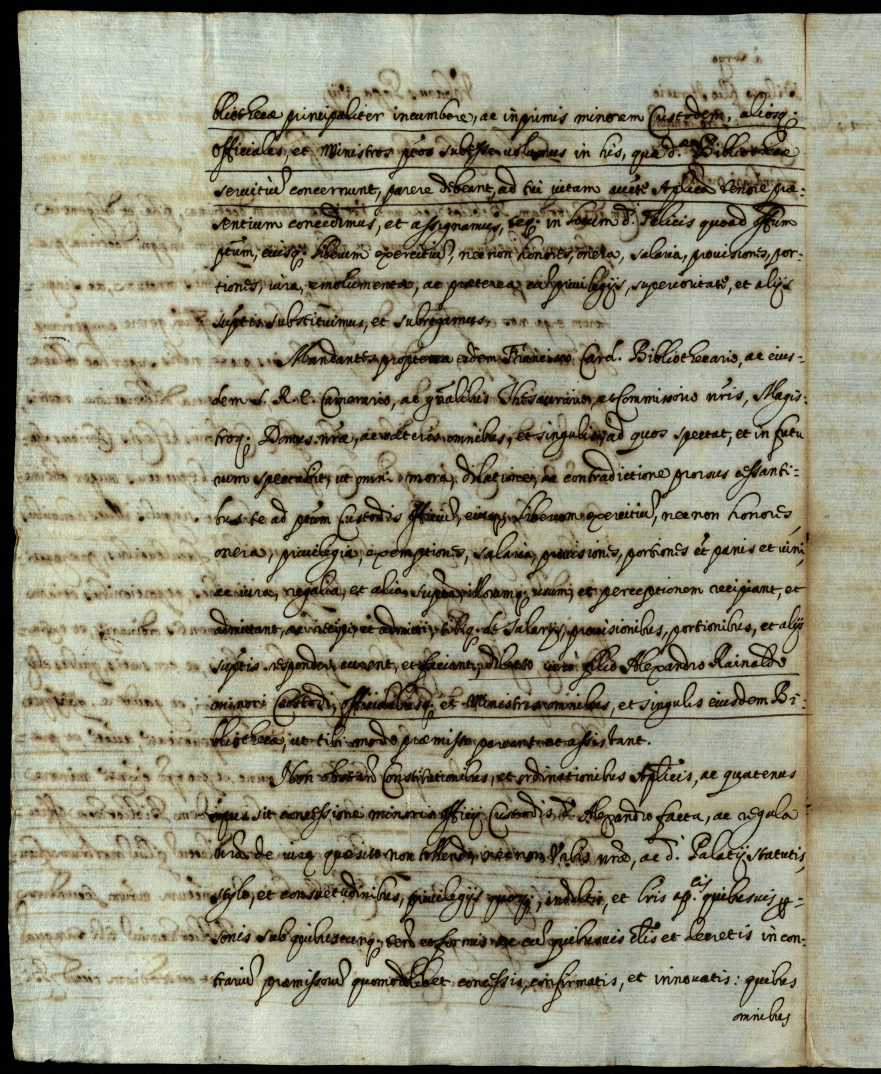 bliothecæ principaliter incumbere, ac inprimis minorem Custodem, aliosq;
Officiales, et Ministros p̃tos subesse volumus in his, quæ d.æ Bibliothecæ
servitiũ concernunt, parere debeant, ad tui vitam auctẽ Aplicâ tenore præ-
sentium concedimus, et assignamus, teq; in locum d. Felicis quoad offum
p̃tum, eiusq; liberum exercitiũ, nec non honores, onera, salaria, provisiones, por-
tiones, iura, emolumenta, ac præterea cũ privilegijs, superioritate, et alijs
sup̃tis substituimus, et subrogamus.
Mandantes propterea eidem Francisco Card. Bibliothecario, ac eius-
dem S. R. E. Camerario, ac gñalibus Thesaurario, et Commissario nr̃is, Magis-
troq; Domus nr̃æ, ac cæteris omnibus, et singulis, ad quos spectat, et in futu
rum spectabit, ut omni mora, dilatione, ac contradictione prorsus cessanti-
bus te ad p̃tum Custodis officiũ, eiusq; liberum exercitiũ, nec non honores
onera, privilegia, exemptiones, salaria, provisiones, portiones et panis et vini,
ac iura, regalia, et alia supᵈᵃ, illorumq; usum, et perceptionem recipiant, et
admittant, ac recipi, et admitti, tibiq; de salarijs, provisionibus, portionibus, et alijs
sup̃tis responderi curent, et faciant, dilecto verò filio Alexandro Rainaldo
minori Custodi, officialibusq; et Ministris omnibus, et singulis eiusdem Bi-
bliothecæ, ut tibi modo præmisso pareant et assistant.
Non obstañ Constitutionibus, et ordinationibus Aplicis, ac quatenus
opus sit concessione minoris officij Custodis d. Alexandro facta, ac regula
nr̃a de iure quæsito non tollendo, nec non Urbis nr̃æ, ac d. Palatij statutis,
stylo, et consuetudinibus, privilegijs quoq; indultis, et lris ap.cis quibusvis p-
sonis sub quibuscunq; tenõ et formis ac cũ quibusvis clis et decretis in con-
trariũ præmissorũ quomodolibet concessis, confirmatis, et innovatis: quibus
omnibus